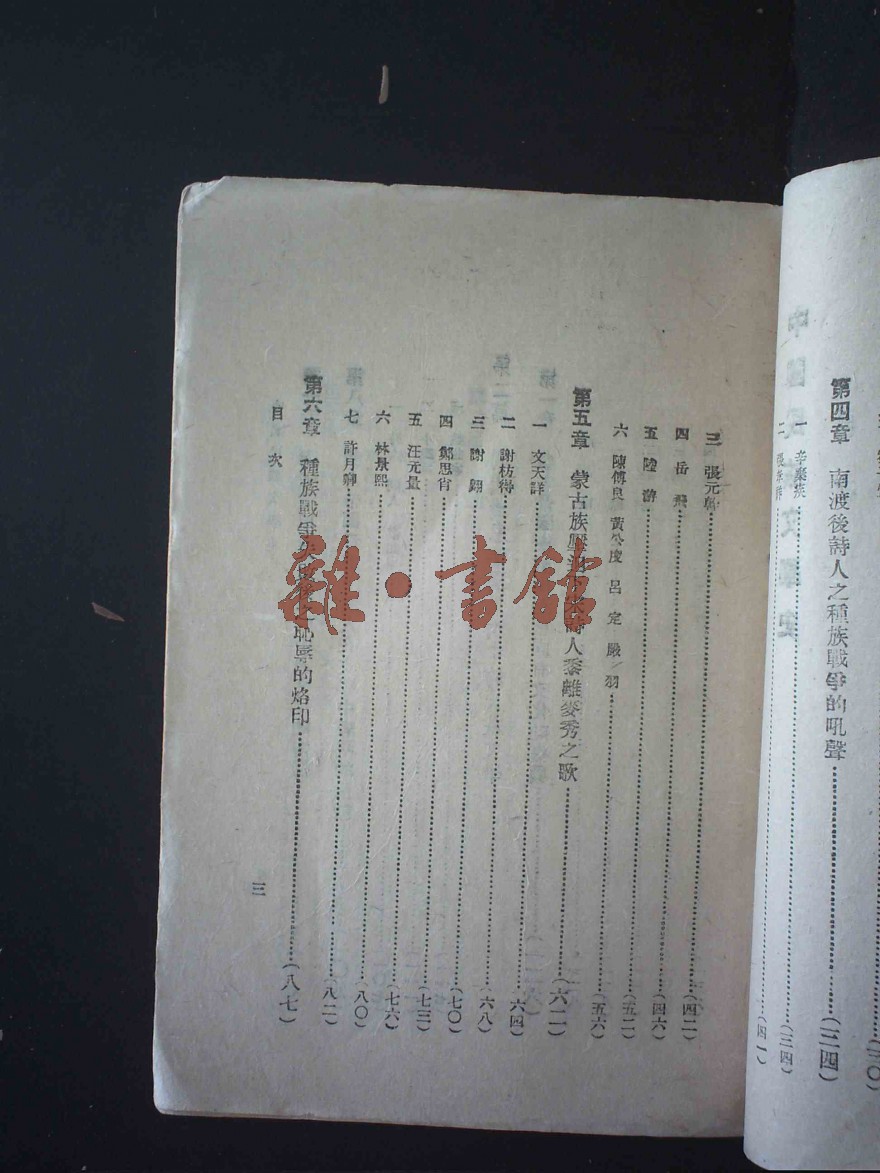 (三〇)
第四章 南渡後詩人之種族戰爭的吼聲 (三四)
一 辛棄疾 (三四)
二 張 (四一)
三 張元幹 (四二)
四 岳 飛 (四六)
五 陸 游 (五二)
六 陳傅良 黃公度 呂 定 嚴 羽 (五六)
第五章 蒙古族 詩人黍離麥秀之歌 (六二)
一 文天祥 (六四)
二 謝枋得 (六八)
三 謝 翱 (七〇)
四 鄭思肖 (七三)
五 汪元量 (七六)
六 林景熙 (八〇)
七 許月卿 (八二)
第六章 種族戰爭 恥辱的烙印 (八七)
目 次
三
雜·書館